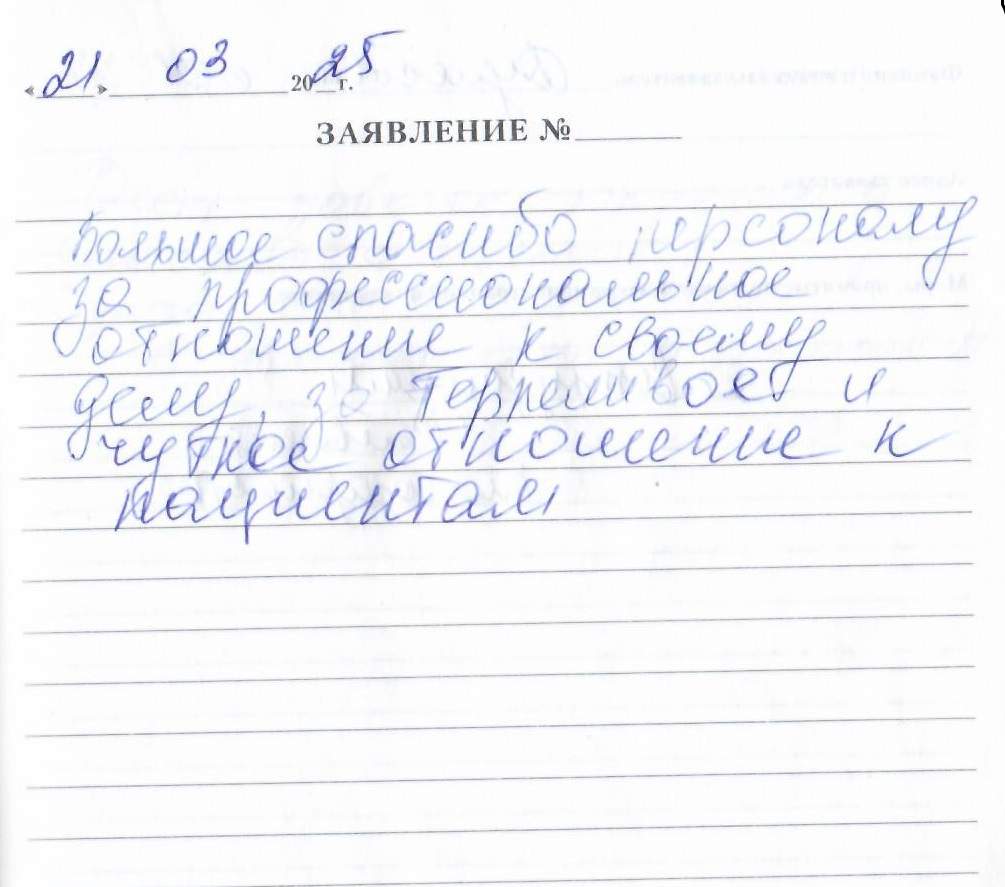 «21» 03 2025 г.
ЗАЯВЛЕНИЕ №
Большое спасибо персоналу
за профессиональное
отношение к своему
делу, за терпеливое и
чуткое отношение к
пациентам